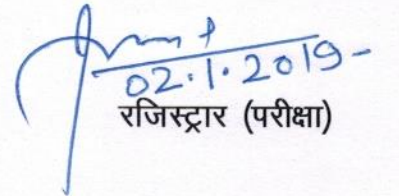 02.1.2019-
रजिस्ट्रार (परीक्षा)